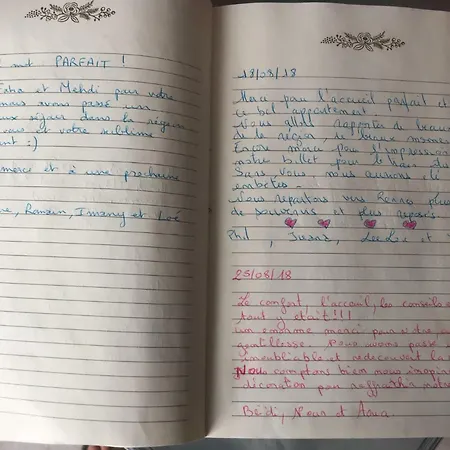 mot PARFAIT !
et Mehdi pour votre
nous avons passé un
séjour dans la région
vous et votre sublime
:)
merci et à une prochaine
Romain, Imany et Loé
18/08/18
Merci pour l'accueil parfait et
ce bel appartement
Nous allons rapporter de beaux
de la région, de beaux momen
Encore merci pour l'impression
notre billet pour
Sans vous nous aurions
embêtés.
Nous repartons vers Rennes plein
de souvenirs et plus reposés.
Phil, Juana, LeeLou et
23/08/18
Le confort, l'accueil, les conseils
tout y était !!!
un énorme merci pour votre
gentillesse. Nous avons passé
inoubliable et redécouvert la
Nous comptons bien nous inspire
décoration pour raffraîchir notre
Bédi, Nour et Aowa.